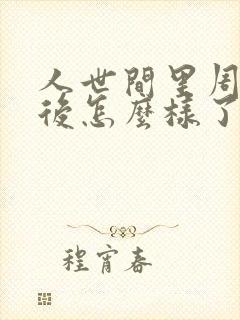 人世間里周
後怎麼樣了
程宵春